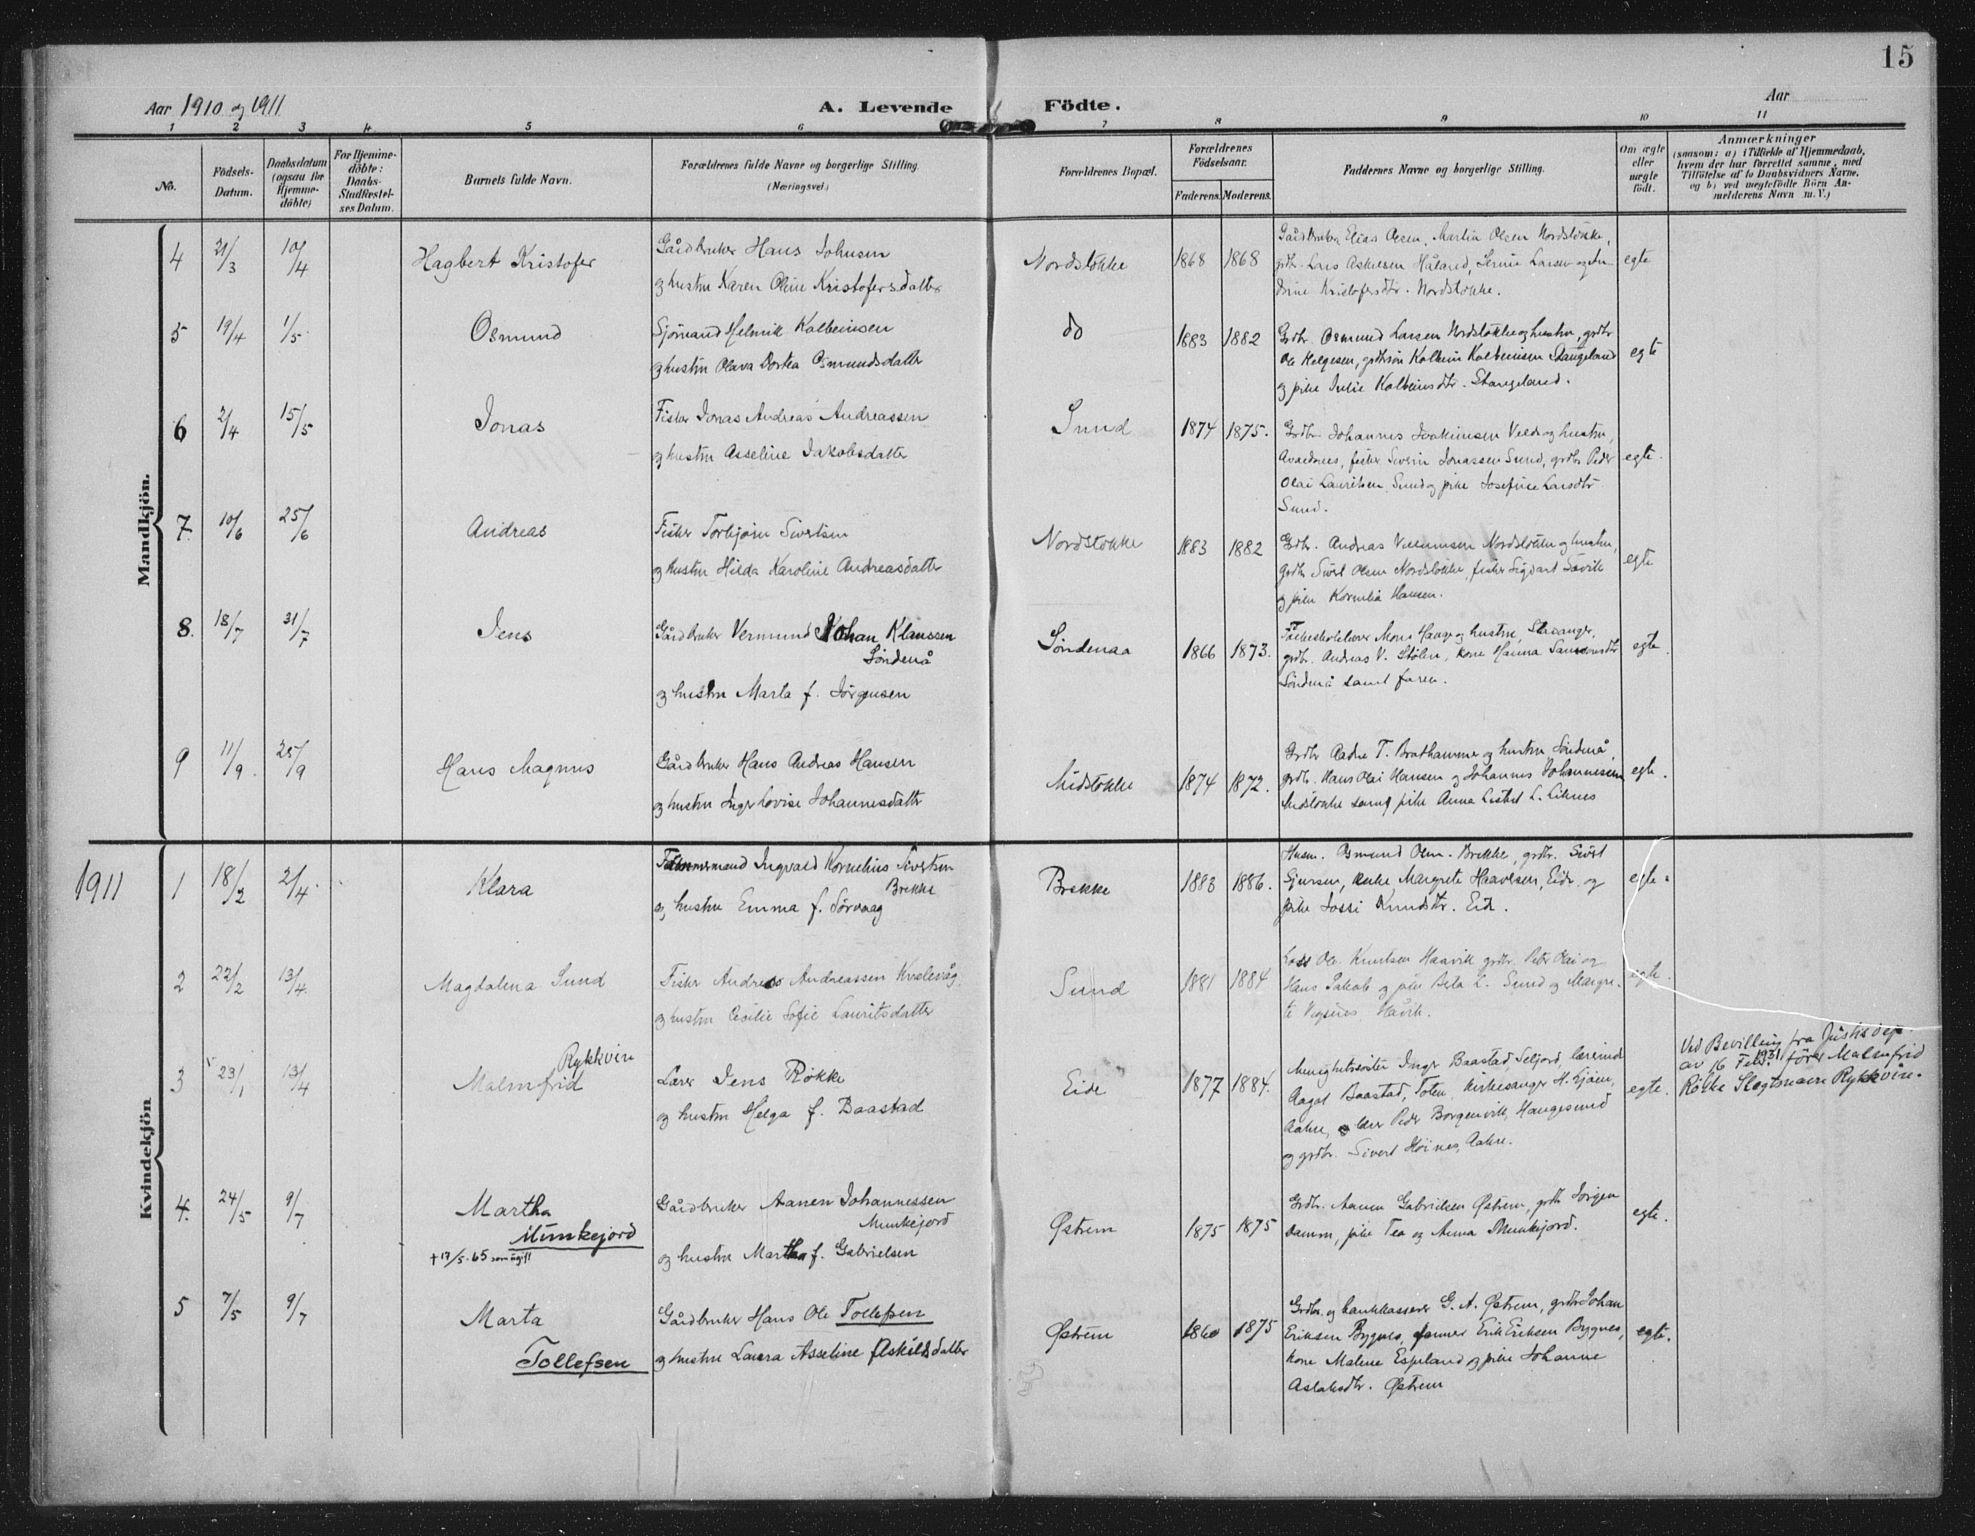 15
Aar 1910 og 1911
A. Levende Födte.
Aar
1 2 3 4 5 6 7 8 9 10 11
No.
Födsels-
Datum.
Daabsdatum
(ogsaa for
Hjemme-
döbte)
For Hjemme-
döbte:
Daabs-
Stadfæstel-
ses Datum.
Barnets fulde Navn.
Forældrenes fulde Navne og borgerlige Stilling.
(Næringsvei.)
Forældrenes Bopæl.
Forældrenes
Födselsaar.
Faderens. Moderens.
Faddernes Navne og borgerlige Stilling.
Om ægte
eller
uægte
födt.
Anmærkninger
(saasom: a) i Tilfælde af Hjemmedaab,
hvem der har forrettet samme, med
Tilföielse af to Daabsvidners Navne,
og b) ved uægtefödte Börn An-
melderens Navn m. V.)
Mandkjön.
4 21/3 10/4 Hagbert Kristofer
Gårdbruker Hans Johnsen
og hustru Karen Oline Kristofersdatter
Nordstokke 1868 1868
Gårdbruker Elias Olsen, Martin Olsen Nordstokke,
Lars Askelsen Håland, Serine Larsen og An-
drine Kristofersdtr. Nordstokke.
egte
5 19/4 1/5 Osmund
Sjömand Helmik Kolbeinsen
og hustru Olava Dortea Osmundsdatter
do 1883 1882
Grdbr. Osmund Larsen Nordstokke og hustru, grdbr
Ole Helgesen, grdbrsön Kolbein Kolbeinsen Stangeland
og pike Julie Kolbeinsdtr. Stangeland.
egte
6 2/4 15/5 Jonas
Fisker Jonas Andreas Andreassen
og hustru Asseline Jakobsdatter
Sund 1874 1875.
Grdbr. Johannes Joakimsen Velde og hustru,
Avaldnes, fisker Severin Jonassen Sund, grdbr Peder
Olai Lauritsen Sund og pike Josefine Larsdtr
Sund.
egte.
7. 10/6 25/6 Andreas
Fisker Torbjörn Sivertsen
og hustru Hilda Karoline Andreasdatter
Nordstokke 1883 1882
Grdbr. Andreas Nordstokke og hustru,
grdbr Sivert Olsen Nordstokke, fisker Sigvart Sævik
og pike Kornelia Hansen.
egte
8. 18/7 31/7 Jens
Gårdbruker Vermund Johan Klaussen
Söndenå
og hustru Marta f. Jörgensen
Söndenaa 1866 1873.
Folkeskolelærer Mons Hauge og hustru, Stavanger,
grdbr. Andreas V. Stölen, kone Hanna Samsonsdtr
Söndenå samt faren.
egte.
9 11/9. 25/9 Hans Magnus
Gårdbruker Hans Andreas Hansen
og hustru Inger Lovise Johannesdatter
Midstokke 1874 1872.
Grdbr Aadne T. Brathammer og hustru Söndenå,
grdbr. Hans Olai Hansen og Johannes Johannesen
Midstokke samt pike Anna Lisbet L. Liknes
egte.
1911
Kvindekjön
1 18/2 2/4. Klara
Tömmermand Ingvald Kornelius Sivertsen
Brekke
og hustru Emma f. Sörvaag
Brekke 1883 1886.
Husm. Osmund Olsen. Brekke, grdbr. Sivert
Sjursen, enke Margrete Haavesen, Eide og
pike Jossi Knudsdtr. Eide.
egte.
2 22/2 13/4. Magdalena Sund
Fisker Andreas Andreassen Kvalevåg
og hustru Cecilie Sofie Lauritsdatter
Sund 1881 1884
Ole Knutsen Haavik grdbr. Peder Olai og
Hans Jakob og pike Berta L. Sund og Margre-
te Vignes Håvik.
egte.
3 23/1 13/4 Malmfrid Rykkvin
Lærer Jens Rökke
og hustru Helga f. Baastad
Eide 1877 1884.
Menighetssöster Inger Baastad, Seljord, lærerinde
Aagot Baastad, Toten, kirkesanger H. Ejöen,
Aakre, lærer Peder Borgenvik, Haugesund
og grdbr. Sivert Höines, Aakre.
egte.
Ved Bevilling fra Justisdep.
av 16 Febr. 1931 förer Malmfrid
Rökke Slegtsnavn Rykkvin.
4. 24/5 9/7 Martha
Munkejord
+ 17/5. 65 som ugift
Gårdbruker Aanen Johannessen
Munkejord
og hustru Martha f. Gabrielsen
Östrem 1875 1875
Grdbr. Aanen Gabrielsen Östrem, grdbr. Jörgen
Damm, pike Tea og Anna Munkejord.
egte.
5 7/5 9/7 Marta
Tollefsen
Gårdbruker Hans Ole Tollefsen
og hustru Laura Asseline Askildsdatter
Östrem 1860 1875
Grdbr. og bankkasserer G. A. Östrem, grdbr Johan
Eriksen Bygnes, Erik Eriksen Bygnes,
kone Malene Espeland og pike Johanne
Aslaksdtr. Östrem
egte.